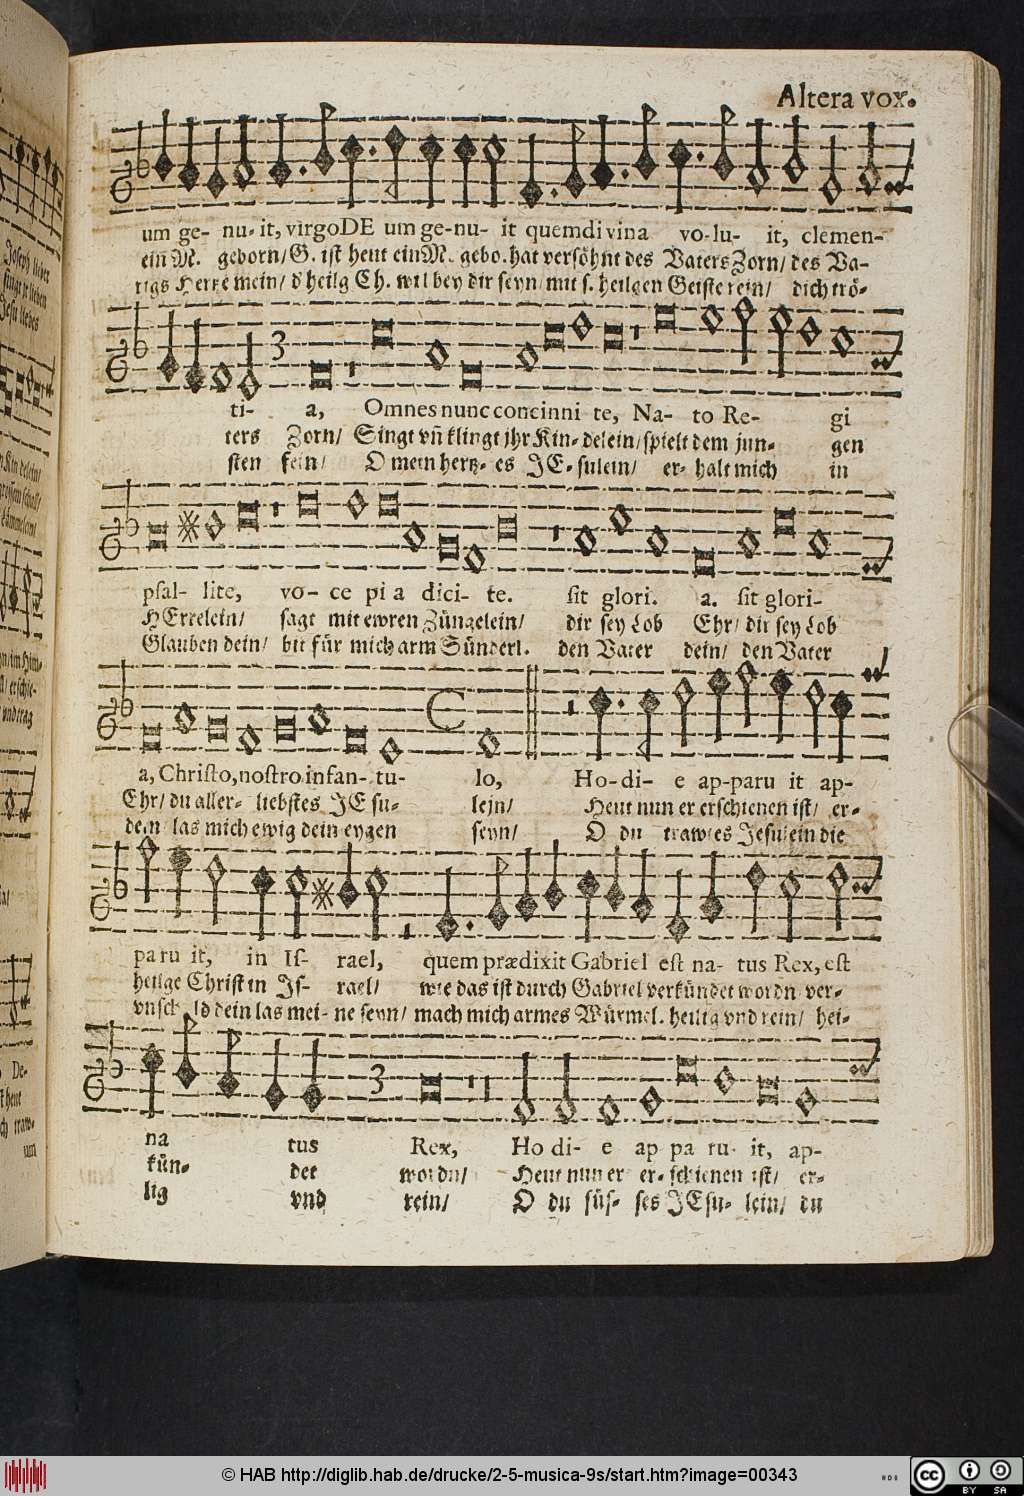 Altera vox.
um ge- nu- it, virgo DE um ge-nu- it quem divina vo-lu- it, clemen-
ein M. geborn/ G. ist heut ein M. gebo. hat versöhnt des Vaters Zorn/ des Va-
tigs Hertze mein/ d' heilg Ch. wil bey dir seyn/ mit s. heilgen Geiste rein/ dich trö-
3
ti- a, Omnes nunc concinni te, Na- to Re- gi
ters Zorn/ Singt vñ klingt jhr Kin- delein/ spielt dem jun- gen
sten fein/ O mein hertz- es JE- sulein/ er- halt mich in
psal- lite, vo- ce pi a dici- te. sit glori. a. sit glori-
HErrelein/ sagt mit ewren Züngelein/ dir sey Lob Ehr/ dir sey Lob
Glauben dein/ bit für mich arm Sünderl. den Vater dein/ den Vater
a, Christo, nostro infan- tu- lo, Ho- di- e ap-paru it ap-
Ehr/ du aller- liebstes JEsu- lein/ Heut nun er erschienen ist/ er-
dein/ las mich ewig dein eygen seyn/ O du trawtes Jesulein die
paru it, in Is- rael, quem prædixit Gabriel est na- tus Rex, est
heilge Christ in Is- rael/ wie das ist durch Gabriel verkündet wordn/ ver-
vnschuld dein las mei- ne seyn/ mach mich armes Würmel. heilig vnd rein/ hei-
3
na tus Rex, Ho di- e ap pa ru- it, ap-
kün- det wordn/ Heut nun er er- schienen ist/ er-
lig vnd rein/ O du süs- ses JEsu- lein/ du
Joseph lieber
Jesu liebes
Kin delein/
© HAB http://diglib.hab.de/drucke/2-5-musica-9s/start.htm?image=00343
cc BY SA